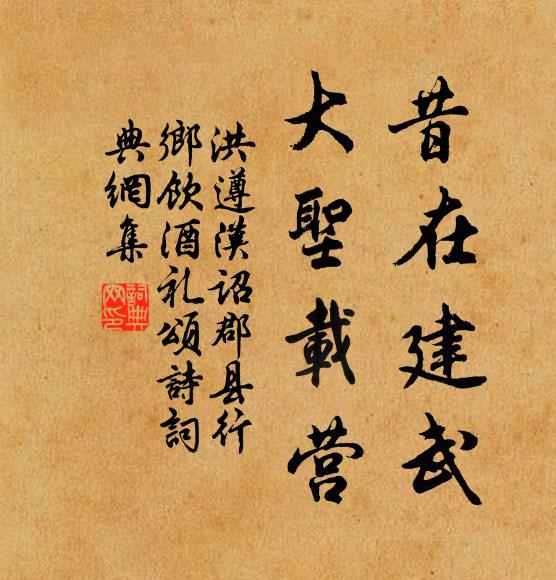 昔在建武
大聖載营
洪遵漢詔郡县行
鄉飲酒礼頌詩詞
典網集
詞典網印